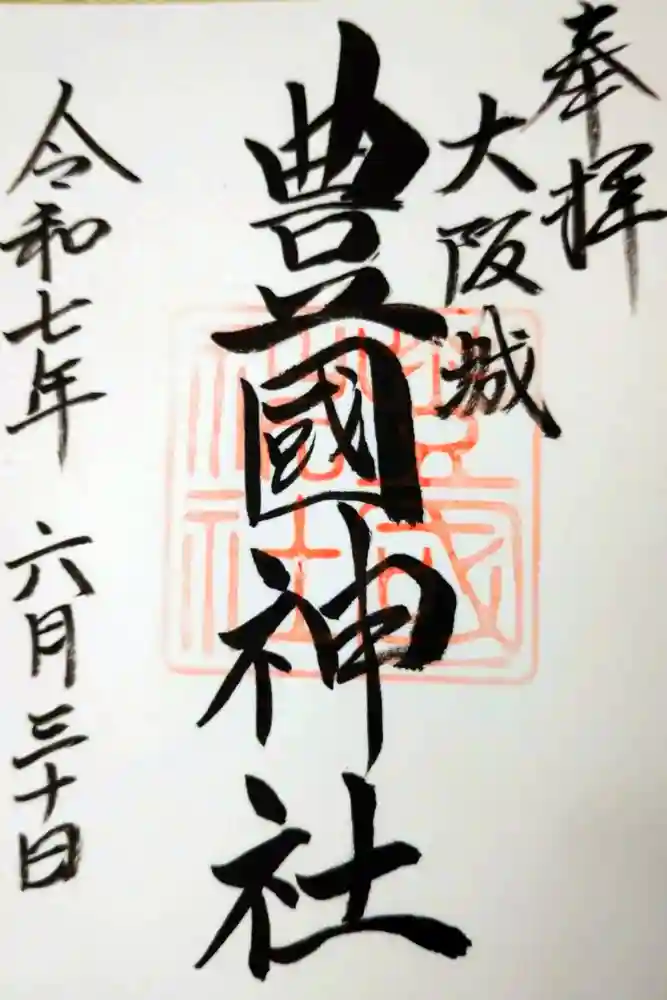 奉拝
大阪城
豊國神社
豊國神社
令和七年 六月三十日